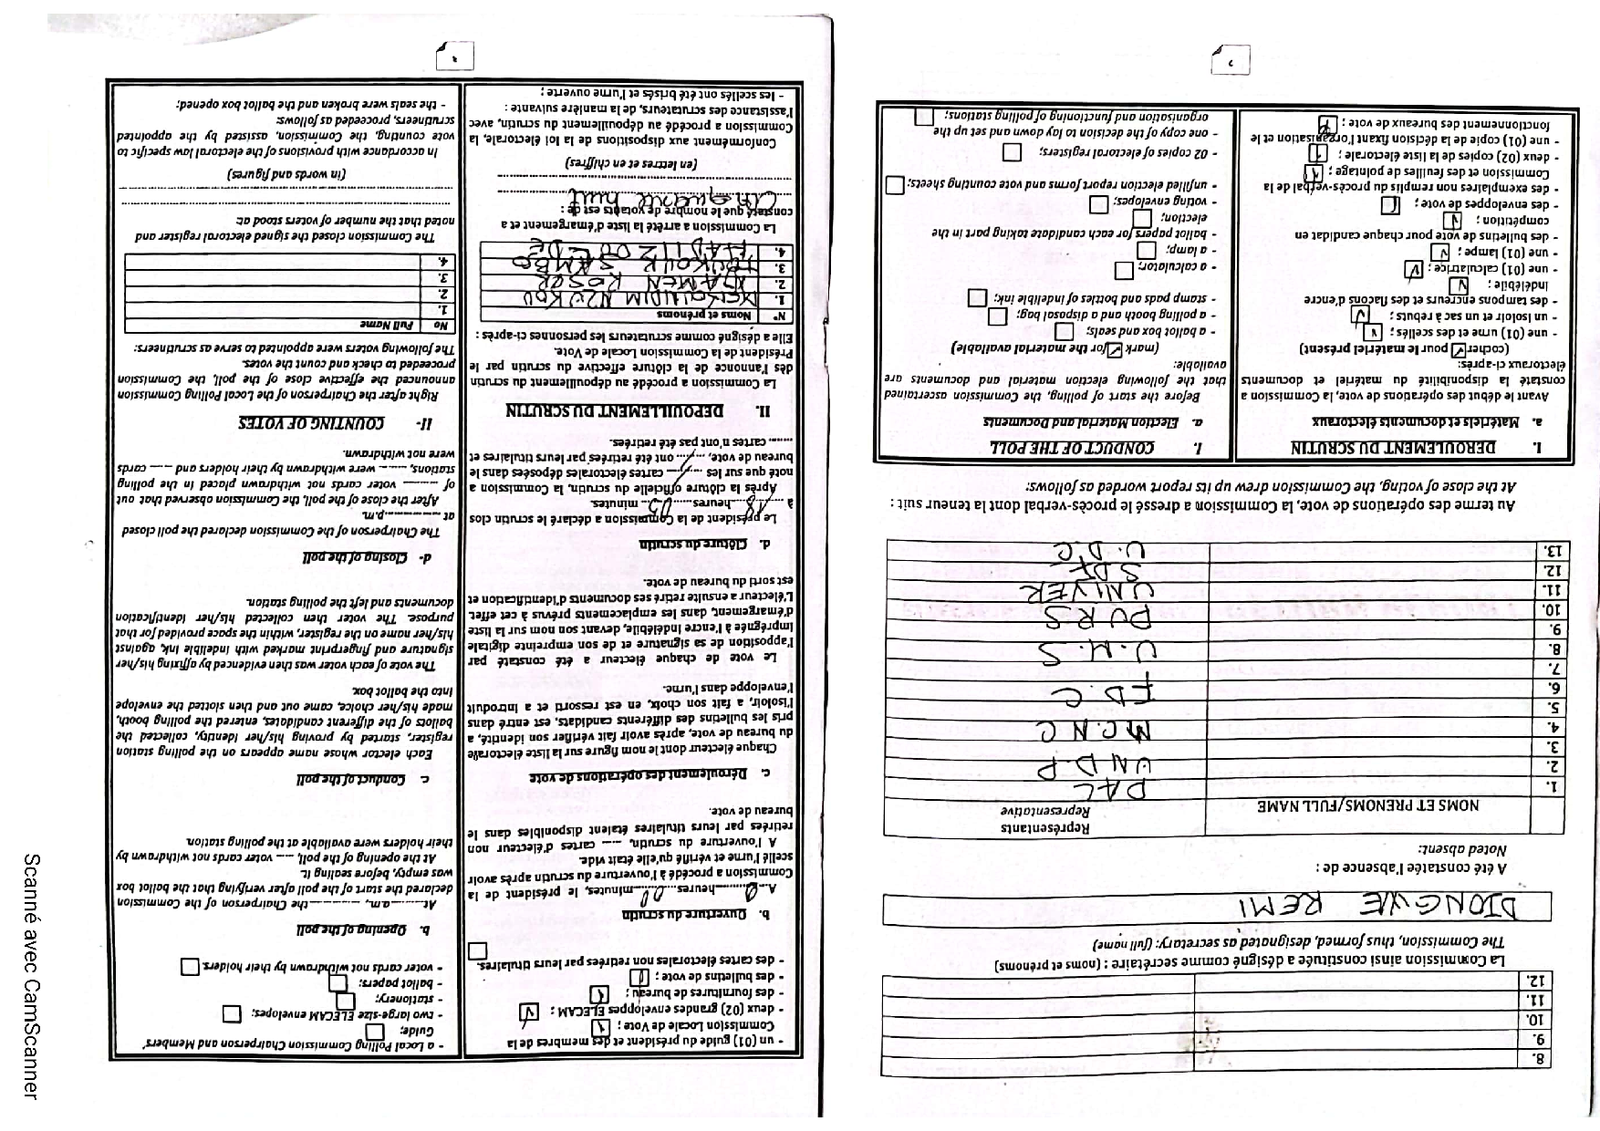 8.
9.
10.
11.
12.
La Commission ainsi constituée a désigné comme secrétaire : (noms et prénoms)
The Commission, thus formed, designated as secretary: (full name)
DJONGWE REMI
A été constatée l'absence de :
Noted absent:
NOMS ET PRENOMS/FULL NAME
Représentants
Representative
1. PAL
2. UNDP
3.
4. MCNC
5.
6. FDC
7.
8. U.M.S
9.
10. PURS
11. UNIVER
12. SDF
13. U.D.C
Au terme des opérations de vote, la Commission a dressé le procès-verbal dont la teneur suit :
At the close of voting, the Commission drew up its report worded as follows:
I. DEROULEMENT DU SCRUTIN
a. Matériels et documents électoraux
Avant le début des opérations de vote, la Commission a
constaté la disponibilité du matériel et documents
électoraux ci-après:
(cocher ✓ pour le matériel présent)
- une (01) urne et des scellés ; ✓
- un isoloir et un sac à rebuts ; ✓
- des tampons encreurs et des flacons d'encre
indélébile ; ✓
- une (01) calculatrice ; ✓
- une (01) lampe ; ✓
- des bulletins de vote pour chaque candidat en
compétition ; ✓
- des enveloppes de vote ;
- des exemplaires non remplis du procès-verbal de la
Commission et des feuilles de pointage ;
- deux (02) copies de la liste électorale ;
- une (01) copie de la décision fixant l'organisation et le
fonctionnement des bureaux de vote ;
I. CONDUCT OF THE POLL
a. Election Material and Documents
Before the start of polling, the Commission ascertained
that the following election material and documents are
available:
(mark ✓ for the material available)
- a ballot box and seals;
- a polling booth and a disposal bag;
- stamp pads and bottles of indelible ink;
- a calculator;
- a lamp;
- ballot papers for each candidate taking part in the
election;
- voting envelopes;
- unfilled election report forms and vote counting sheets;
- 02 copies of electoral registers;
- one copy of the decision to lay down and set up the
organisation and functioning of polling stations;
2
- un (01) guide du président et des membres de la
Commission Locale de Vote ;
- deux (02) grandes enveloppes ELECAM ; ✓
- des fournitures de bureau ;
- des bulletins de vote ;
- des cartes électorales non retirées par leurs titulaires.
b. Ouverture du scrutin
A ........heures........minutes, le président de la
Commission a procédé à l'ouverture du scrutin après avoir
scellé l'urne et vérifié qu'elle était vide.
A l'ouverture du scrutin, ---- cartes d'électeur non
retirées par leurs titulaires étaient disponibles dans le
bureau de vote.
c. Déroulement des opérations de vote
Chaque électeur dont le nom figure sur la liste électorale
du bureau de vote, après avoir fait vérifier son identité, a
pris les bulletins des différents candidats, est entré dans
l'isoloir, a fait son choix, en est ressorti et a introduit
l'enveloppe dans l'urne.
Le vote de chaque électeur a été constaté par
l'apposition de sa signature et de son empreinte digitale
imprégnée à l'encre indélébile, devant son nom sur la liste
d'émargement, dans les emplacements prévus à cet effet.
L'électeur a ensuite retiré ses documents d'identification et
est sorti du bureau de vote.
d. Clôture du scrutin
Le président de la Commission a déclaré le scrutin clos
à 18 heures 05 minutes.
Après la clôture officielle du scrutin, la Commission a
noté que sur les ---- cartes électorales déposées dans le
bureau de vote, ---- ont été retirées par leurs titulaires et
...... cartes n'ont pas été retirées.
II. DEPOUILLEMENT DU SCRUTIN
La Commission a procédé au dépouillement du scrutin
dès l'annonce de la clôture effective du scrutin par le
Président de la Commission Locale de Vote.
Elle a désigné comme scrutateurs les personnes ci-après :
N° Noms et prénoms
1. NZUKOU
2. ROGER
3. SAMBO
4.
La Commission a arrêté la liste d'émargement et a
constaté que le nombre de votants est de :
Cinquante huit
(en lettres et en chiffres)
Conformément aux dispositions de la loi électorale, la
Commission a procédé au dépouillement du scrutin, avec
l'assistance des scrutateurs, de la manière suivante :
- les scellés ont été brisés et l'urne ouverte ;
- a Local Polling Commission Chairperson and Members'
Guide;
- two large-size ELECAM envelopes;
- stationery;
- ballot papers;
- voter cards not withdrawn by their holders.
b. Opening of the poll
At........a.m, ........the Chairperson of the Commission
declared the start of the poll after verifying that the ballot box
was empty, before sealing it.
At the opening of the poll, ---- voter cards not withdrawn by
their holders were available at the polling station.
c. Conduct of the poll
Each elector whose name appears on the polling station
register, started by proving his/her identity, collected the
ballots of the different candidates, entered the polling booth,
made his/her choice, came out and then slotted the envelope
into the ballot box.
The vote of each voter was then evidenced by affixing his/her
signature and fingerprint marked with indelible ink, against
his/her name on the register, within the space provided for that
purpose. The voter then collected his/her identification
documents and left the polling station.
d- Closing of the poll
The Chairperson of the Commission declared the poll closed
at ............p.m.
After the close of the poll, the Commission observed that out
of -------- voter cards not withdrawn placed in the polling
stations, ------- were withdrawn by their holders and ---- cards
were not withdrawn.
II- COUNTING OF VOTES
Right after the Chairperson of the Local Polling Commission
announced the effective close of the poll, the Commission
proceeded to check and count the votes.
The following voters were appointed to serve as scrutineers:
No Full Name
1.
2.
3.
4.
The Commission closed the signed electoral register and
noted that the number of voters stood at:
(in words and figures)
In accordance with provisions of the electoral law specific to
vote counting, the Commission, assisted by the appointed
scrutineers, proceeded as follows:
- the seals were broken and the ballot box opened;
Scanné avec CamScanner